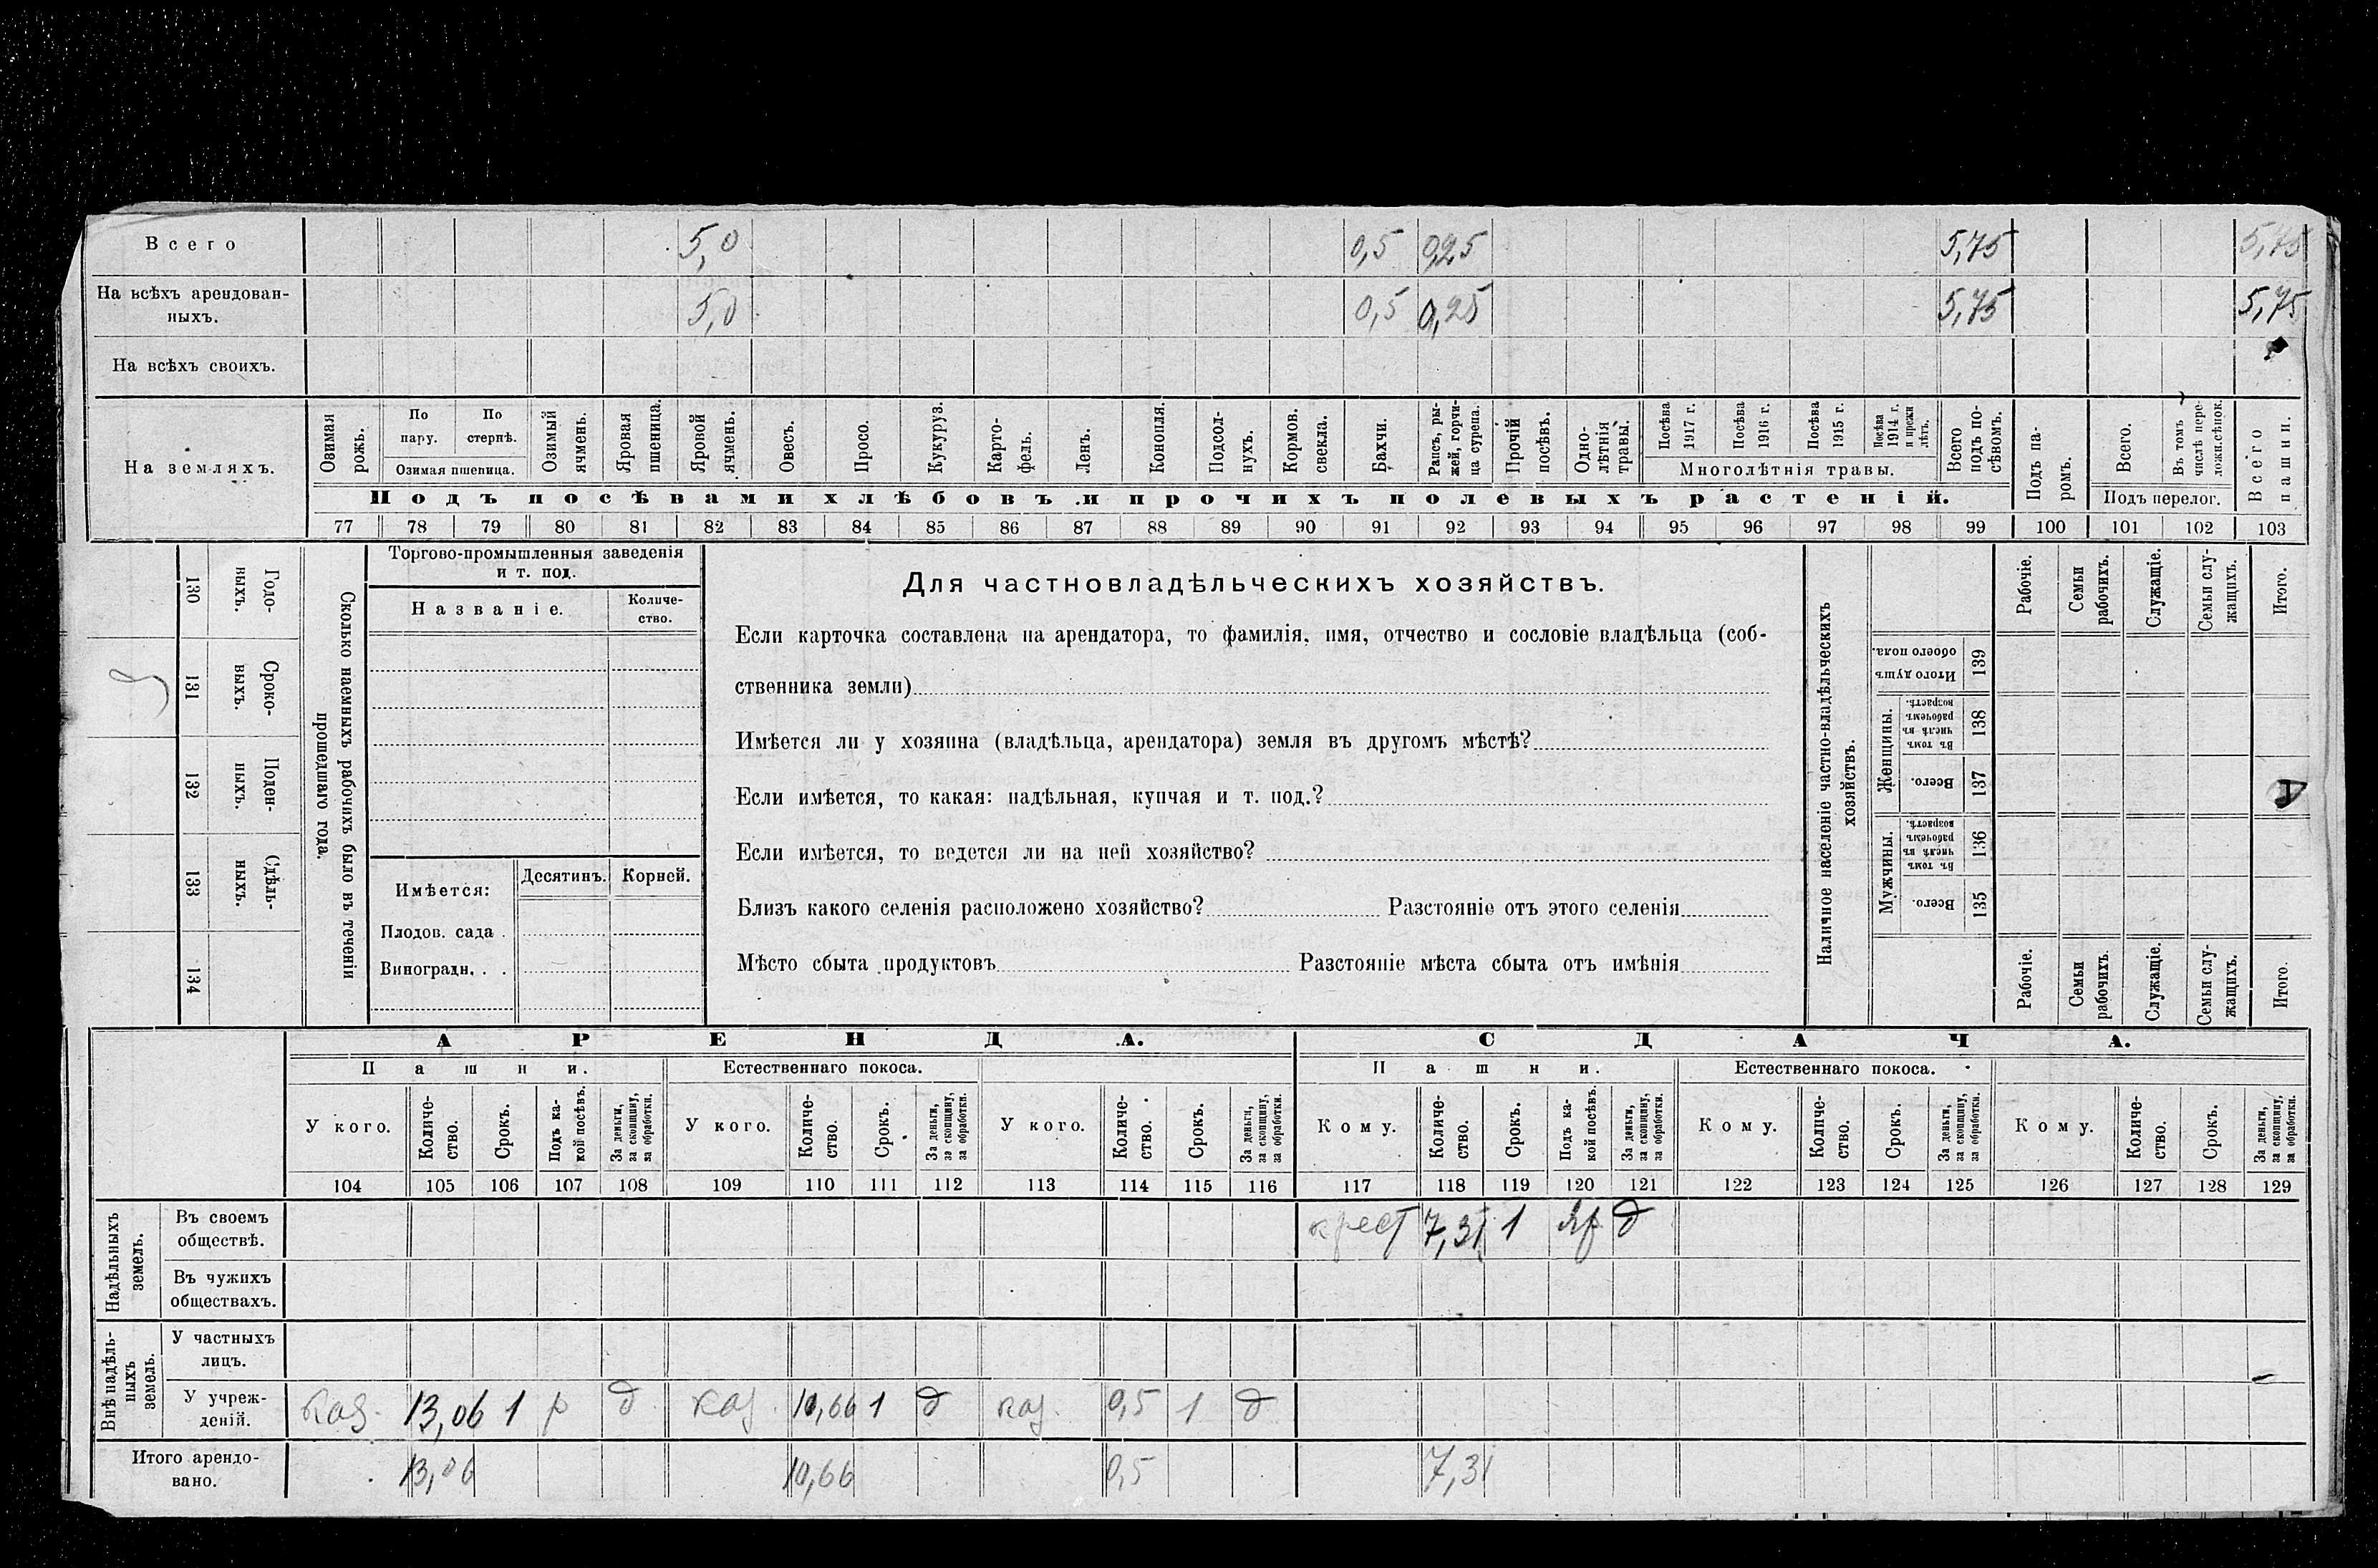 Всего 5,0 0,5 0,25 5,75 5,75
На всѣхъ арендован-
ныхъ. 5,0 0,5 0,25 5,75 5,75
На всѣхъ своихъ.
На земляхъ.
Озимая рожь.
По пару.
По стернѣ.
Озимая пшеница.
Озимый ячмень.
Яровая пшеница.
Яровой ячмень.
Овесъ.
Просо.
Кукуруз.
Карто-
фель.
Ленъ.
Конопля.
Подсол-
нухъ.
Кормов. свекла.
Бахчи.
Рапсъ, ры-
жей, горчи-
ца сурепа.
Прочій посѣвъ.
Одно-
лѣтнія
травы.
Посѣва 1917 г.
Посѣва 1916 г.
Посѣва 1915 г.
Посѣва
1914 г.
и прежн
лѣтъ.
Многолѣтнія травы.
Всего
подъ по-
сѣвомъ.
Подъ па-
ромъ.
Всего.
Въ томъ
числѣ пере-
ложн.сѣнок.
Подъ перелог.
Всего пашни.
Подъ посѣвами хлѣбовъ и прочихъ полевыхъ растеній.
77 78 79 80 81 82 83 84 85 86 87 88 89 90 91 92 93 94 95 96 97 98 99 100 101 102 103
130 Годо-
выхъ.
131 Сроко-
выхъ.
132 Поден-
ныхъ.
133 Сдѣль-
ныхъ.
134
Сколько наемныхъ рабочихъ было въ теченіи
прошедшаго года.
Торгово-промышленныя заведенія
и т. под.
Названіе.
Количе-
ство.
Имѣется: Десятинъ. Корней.
Плодов. сада .
Виноградн. . .
Для частновладѣльческихъ хозяйствъ.
Если карточка составлена на арендатора, то фамилія, имя, отчество и сословіе владѣльца (соб-
ственника земли)
Имѣется ли у хозяина (владѣльца, арендатора) земля въ другомъ мѣстѣ?
Если имѣется, то какая: надѣльная, купчая и т. под.?
Если имѣется, то ведется ли на ней хозяйство?
Близъ какого селенія расположено хозяйство? Разстояніе отъ этого селенія
Мѣсто сбыта продуктовъ Разстояніе мѣста сбыта отъ имѣнія
Наличное населеніе частно-владѣльческихъ
хозяйствъ.
Рабочіе.
Семьи рабочихъ.
Служащіе.
Семьи слу-
жащихъ.
Итого.
Итого душъ обоего пола. 139
Женщины.
Въ томъ числѣ въ рабочемъ возрастѣ. 138
Всего. 137
Мужчины.
Въ томъ числѣ въ рабочемъ возрастѣ. 136
Всего. 135
Рабочіе.
Семьи рабочихъ.
Служащіе.
Семьи слу-
жащихъ.
Итого.
АРЕНДА. СДАЧА.
Пашни. Естественнаго покоса. Пашни. Естественнаго покоса.
У кого.
Количе-
ство.
Срокъ.
Подъ ка-
кой посѣвъ.
За деньги,
за скопщину,
за обработки.
У кого.
Количе-
ство.
Срокъ.
За деньги,
за скопщину,
за обработки.
У кого.
Количе-
ство.
Срокъ.
За деньги,
за скопщину,
за обработки.
Кому.
Количе-
ство.
Срокъ.
Подъ ка-
кой посѣвъ.
За деньги,
за скопщину,
за обработки.
Кому.
Количе-
ство.
Срокъ.
За деньги,
за скопщину,
за обработки.
Кому.
Количе-
ство.
Срокъ.
За деньги,
за скопщину,
за обработки.
104 105 106 107 108 109 110 111 112 113 114 115 116 117 118 119 120 121 122 123 124 125 126 127 128 129
Надѣльныхъ
земель.
Въ своемъ
обществѣ. крест 7,31 1 яр д
Въ чужихъ
обществахъ.
Внѣ надѣль-
ныхъ
земель.
У частныхъ
лицъ.
У учреж-
деній. каз. 13,06 1 р д каз. 10,66 1 д каз. 0,5 1 д
Итого арендо-
вано. 13,06 10,66 0,5 7,31